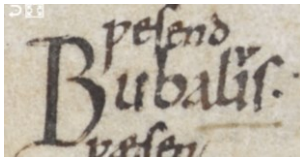 pesend
Bubalis.
pæsen